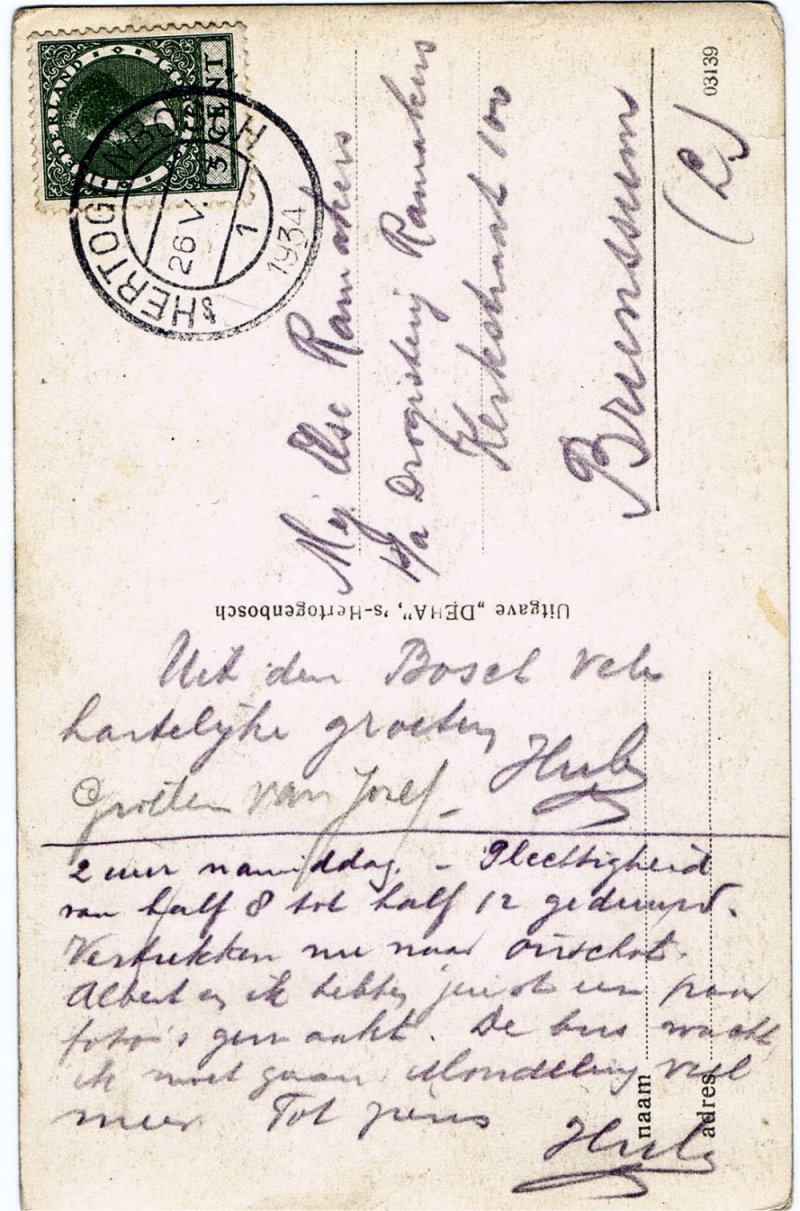 NEDERLAND
3 CENT
'sHERTOGENBOSCH
26 V.
1
1934
03139
Mej Else Ramakers
p/a Drogisterij Ramakers
Kerkstraat 100
Brunssum
(L)
Uitgave „DEHA”, 's-Hertogenbosch
Uit den Bosch vele
hartelijke groeten
Hub
Groeten van Josef
2 uur namiddag. – Plechtigheid
van half 8 tot half 12 geduurd.
Vertrekken nu naar Oirschot.
Albert en ik hebben juist een paar
foto's gemaakt. De bus wacht,
ik moet gaan. Mondeling veel
meer. Tot ziens
Hub
naam
adres